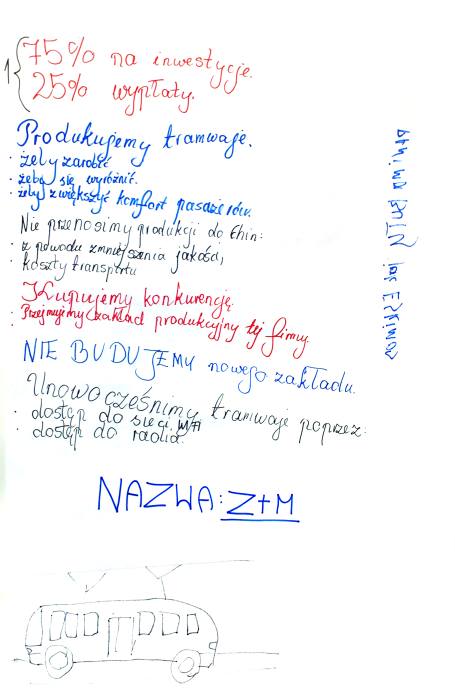 1
75% na inwestycje.
25% wypłaty.
Produkujemy tramwaje.
• żeby zarobić
• żeby się wyróżnić.
• żeby zwiększyć komfort pasażerów.
Nie przenosimy produkcji do Chin:
• z powodu zmniejszenia jakości,
• koszty transportu
Kupujemy konkurencję.
• Przejmujemy zakład produkcyjny tej firmy.
NIE BUDUJEMY nowego zakładu.
Unowocześnimy tramwaje poprzez:
• dostęp do sieci WIFI
• dostęp do radia.
NAZWA: Z+M